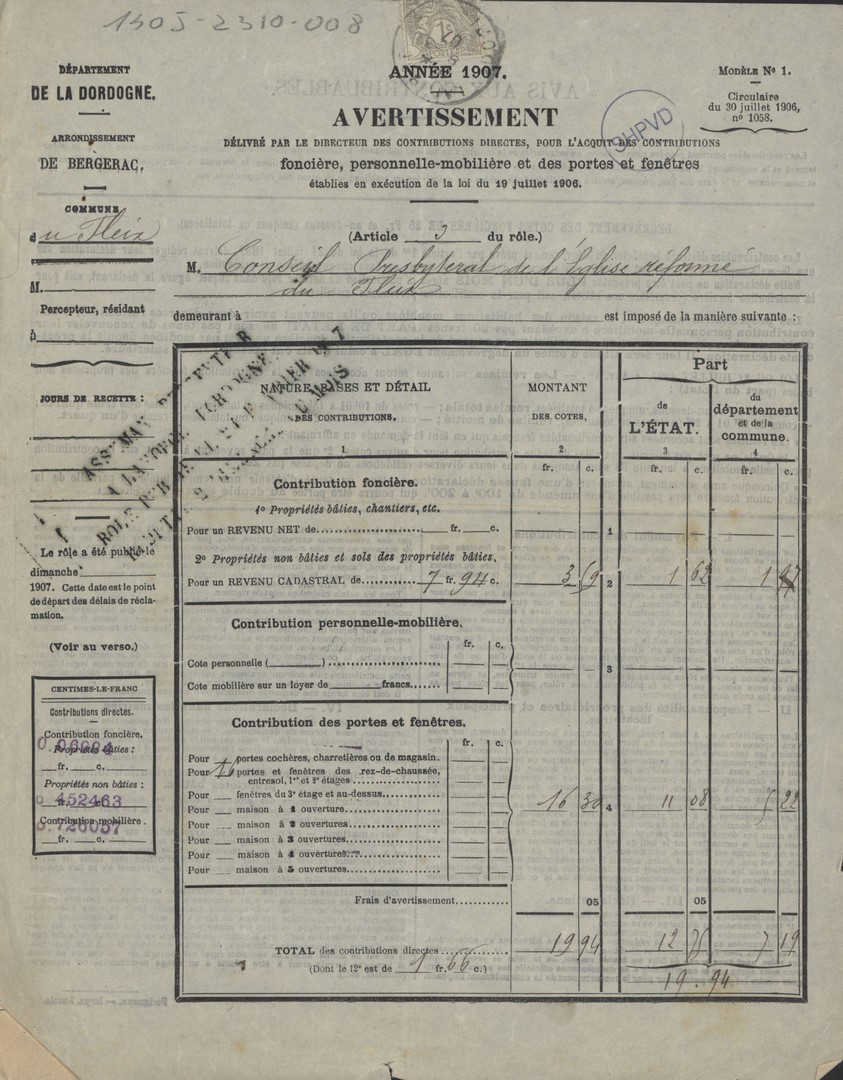 1405-2310-008
DÉPARTEMENT
DE LA DORDOGNE.
ARRONDISSEMENT
DE BERGERAC.
COMMUNE
du Fleix
M.
Percepteur, résidant
à
JOURS DE RECETTE :
Le rôle a été publié le
dimanche
1907. Cette date est le point
de départ des délais de récla-
mation.
(Voir au verso.)
CENTIMES-LE-FRANC
Contributions directes.
Contribution foncière.
Propriétés bâties :
fr. c.
Propriétés non bâties :
0.452463
fr. c.
Contribution mobilière.
0.726057
fr. c.
ANNÉE 1907.
AVERTISSEMENT
DÉLIVRÉ PAR LE DIRECTEUR DES CONTRIBUTIONS DIRECTES, POUR L'ACQUIT DES CONTRIBUTIONS
foncière, personnelle-mobilière et des portes et fenêtres
établies en exécution de la loi du 19 juillet 1906.
MODÈLE No 1.
Circulaire
du 30 juillet 1906,
no 1058.
SHPVD
(Article 3 du rôle.)
M. Conseil Presbyteral de l'Église réformé
du Fleix
demeurant à est imposé de la manière suivante :
NATURE, BASES ET DÉTAIL
DES CONTRIBUTIONS.
1
MONTANT
DES COTES.
2
Part
de
L'ÉTAT.
3
du
département
et de la
commune.
4
fr. c. fr. c. fr. c.
Contribution foncière.
1o Propriétés bâties, chantiers, etc.
Pour un REVENU NET de fr. c. 1
2o Propriétés non bâties et sols des propriétés bâties.
Pour un REVENU CADASTRAL de 7 fr. 94 c. 3 59 2 1 62 1 97
Contribution personnelle-mobilière.
fr. c.
Cote personnelle ( ) 3
Cote mobilière sur un loyer de francs
Contribution des portes et fenêtres.
fr. c.
Pour portes cochères, charretières ou de magasin.
Pour 16 portes et fenêtres des rez-de-chaussée,
entresol, 1er et 2e étages
Pour fenêtres du 3e étage et au-dessus 16 30 4 11 08 5 22
Pour maison à 1 ouverture
Pour maison à 2 ouvertures
Pour maison à 3 ouvertures
Pour maison à 4 ouvertures
Pour maison à 5 ouvertures
Frais d'avertissement 05 05
TOTAL des contributions directes 19 94 12 75 7 19
(Dont le 12e est de 1 fr. 66 c.) 19.94